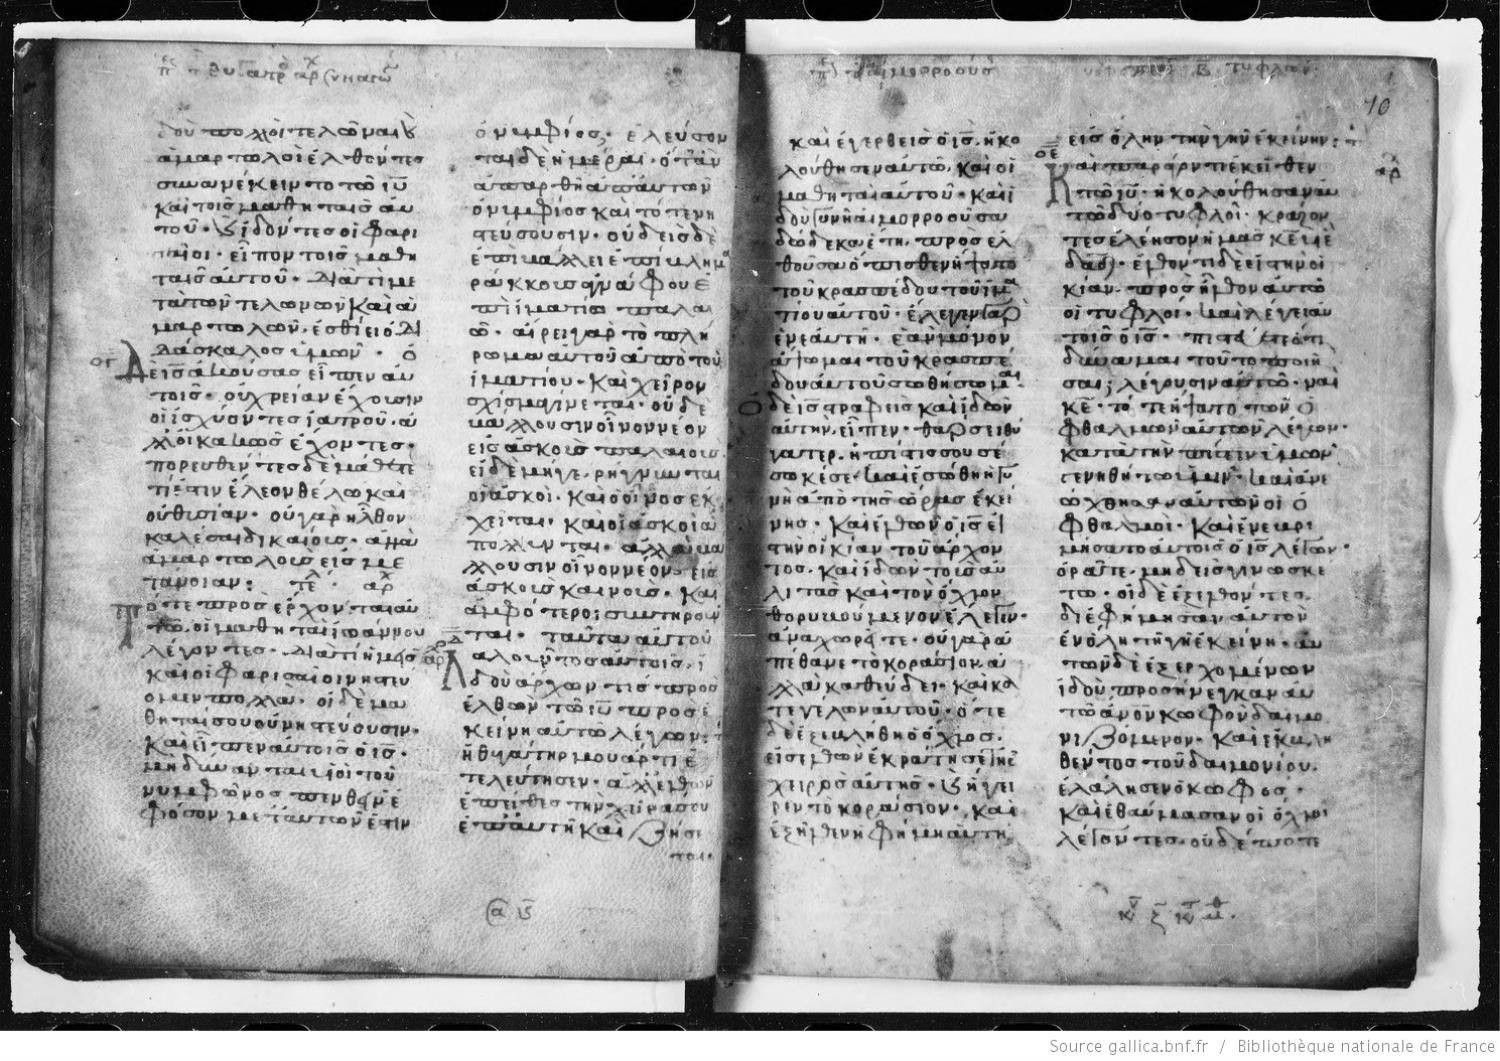 δοὺ πολλοὶ τελῶναι κ(αὶ)
ἁμαρτωλοὶ ἐλθόντες
συνανέκειντο τῶ ιυ
καὶ τοῖς μαθηταῖς αὐ
τοῦ· καὶ ἰδόντες οἱ φαρι
σαῖοι· εἶπον τοῖς μαθη
ταῖς αὐτοῦ· διατί με
τὰ τῶν τελωνῶν καὶ ἁ
μαρτωλῶν, ἐσθίει ὁ δι
δάσκαλος ὑμῶν· ὁ
δὲ ις ἀκούσας εἶπεν αὐ
τοῖς· οὐ χρείαν ἔχουσιν
οἱ ἰσχύοντες ἰατροῦ· ἀλ
λ οἱ κακῶς ἔχοντες·
πορευθέντες δὲ μάθετε
τί ἐστιν ἔλεον θέλω καὶ
οὐ θυσίαν· οὐ γὰρ ἦλθον
καλέσαι δικαίους· ἀλλὰ
ἁμαρτωλοὺς εἰς με
τάνοιαν: τε αρ
Τότε προσέρχονται αὐ
τῶ, οἱ μαθηταὶ ἰωάννου
λέγοντες· διατί ἡμεῖς
καὶ οἱ φαρισαῖοι νηστεύ
ομεν πολλὰ· οἱ δὲ μα
θηταί σου οὐ νηστεύουσιν·
καὶ εἶπεν αὐτοῖς ὁ ις·
μὴ δύνανται υἱοὶ τοῦ
νυμφῶνος πενθεῖν ἐ
φόσον μετ αὐτῶν ἐστιν
ὁ νυμφίος; ἐλεύσον
ται δὲ ἡμέραι· ὅταν
ἀπαρθῆ ἀπ αὐτῶν
ὁ νυμφίος καὶ τότε νη
στεύσουσιν· οὐδεὶς δὲ
ἐπιβάλλει ἐπίβλημα
ῥάκκους ἀγνάφου ἐ
πὶ ἱματίω παλαι
ῶ· αἴρει γὰρ τὸ πλή
ρωμα αὐτοῦ ἀπὸ τοῦ
ἱματίου· καὶ χεῖρον
σχίσμα γίνεται· οὐδὲ
βάλλουσιν οἶνον νέον
εἰς ἀσκοὺς παλαιούς·
εἰ δὲ μήγε, ῥήγνυνται
οἱ ἀσκοὶ· καὶ ὁ οἶνος ἐκ
χεῖται· καὶ οἱ ἀσκοὶ ἀ
πολλῦνται· ἀλλὰ βά
λλουσιν οἶνον νέον εἰς
ἀσκοὺς καινούς· καὶ
ἀμφότεροι συντηροῦν
ται· ταῦτα αὐτοῦ
λαλοῦντος αὐτοῖς, ἰ
δοὺ ἄρχων τις προσ
ελθὼν τῶ ιυ προσε
κύνει αὐτῶ λέγων: ὅτι
ἡ θυγάτηρ μου ἄρτι ἐ
τελεύτησεν· ἀλλ ἐλθὼν
ἐπίθες τὴν χεῖρά σου
ἐπ αὐτὴν καὶ ζήσε
ται·
10
καὶ ἐγερθεὶς ὁ ις, ἠκο
λούθησεν αὐτῶ, καὶ οἱ
μαθηταὶ αὐτοῦ· καὶ ἰ
δοὺ γυνὴ αἱμορροοῦσα
δώδεκα ἔτη, προσελ
θοῦσα ὄπισθεν ἥψατο
τοῦ κρασπέδου τοῦ ἱμα
τίου αὐτοῦ· ἔλεγεν γὰρ
ἐν ἑαυτῆ· ἐὰν μόνον
ἅψωμαι τοῦ κρασπέ
δου αὐτοῦ σωθήσωμαι·
ὁ δὲ ις στραφεὶς καὶ ἰδὼν
αὐτὴν, εἶπεν· θάρσει θύ
γατερ. ἡ πίστις σου σέ
σωκέ σε· καὶ ἐσώθη ἡ γυ
νὴ ἀπὸ τῆς ὥρας ἐκεί
νης· καὶ ἐλθὼν ὁ ις εἰς
τὴν οἰκίαν τοῦ ἄρχον
τος· καὶ ἰδὼν τοὺς αὐ
λητὰς καὶ τὸν ὄχλον
θορυβούμενον ἔλεγεν·
ἀναχωρεῖτε· οὐ γὰρ ἀ
πέθανε τὸ κοράσιον, ἀ
λλὰ καθεύδει· καὶ κα
τεγέλων αὐτοῦ· ὅτε
δὲ ἐξεβλήθη ὁ ὄχλος·
εἰσελθὼν ἐκράτησε τῆς
χειρὸς αὐτῆς· καὶ ἠγέρ
θη τὸ κοράσιον· καὶ
ἐξῆλθεν ἡ φήμη αὕτη
εἰς ὅλην τὴν γῆν ἐκείνην:
Καὶ παράγοντι ἐκεῖθεν
τῶ ιυ· ἠκολούθησαν αὐ
τῶ δύο τυφλοὶ· κράζον
τες ἐλέησον ἡμᾶς κε υἱὲ
δαδ· ἐλθόντι δὲ εἰς τὴν οἰ
κίαν προσῆλθον αὐτῶ
οἱ τυφλοὶ· καὶ λέγει αὐ
τοῖς ὁ ις· πιστεύετε ὅτι
δύναμαι τοῦτο ποιῆ
σαι; λέγουσιν αὐτῶ· ναὶ
κε· τότε ἥψατο τῶν ὀ
φθαλμῶν αὐτῶν λέγων·
κατὰ τὴν πίστιν ὑμῶν
γενηθήτω ὑμῖν· καὶ ἀνε
ώχθησαν αὐτῶν οἱ ὀ
φθαλμοὶ· καὶ ἐνεβρι
μήσατο αὐτοῖς ὁ ις λέγων·
ὁρᾶτε, μηδεὶς γινωσκέ
τω· οἱ δὲ ἐξελθόντες,
διεφήμησαν αὐτὸν
ἐν ὅλη τῆ γῆ ἐκείνη· αὐ
τῶν δὲ ἐξερχομένων
ἰδοὺ προσήνεγκαν αὐ
τῶ ανον κωφὸν δαιμο
νιζόμενον· καὶ ἐκβλη
θέντος τοῦ δαιμονίου,
ἐλάλησεν ὁ κωφὸς·
καὶ ἐθαύμασαν οἱ ὄχλοι
λέγοντες· οὐδέποτε
Source gallica.bnf.fr / Bibliothèque nationale de France